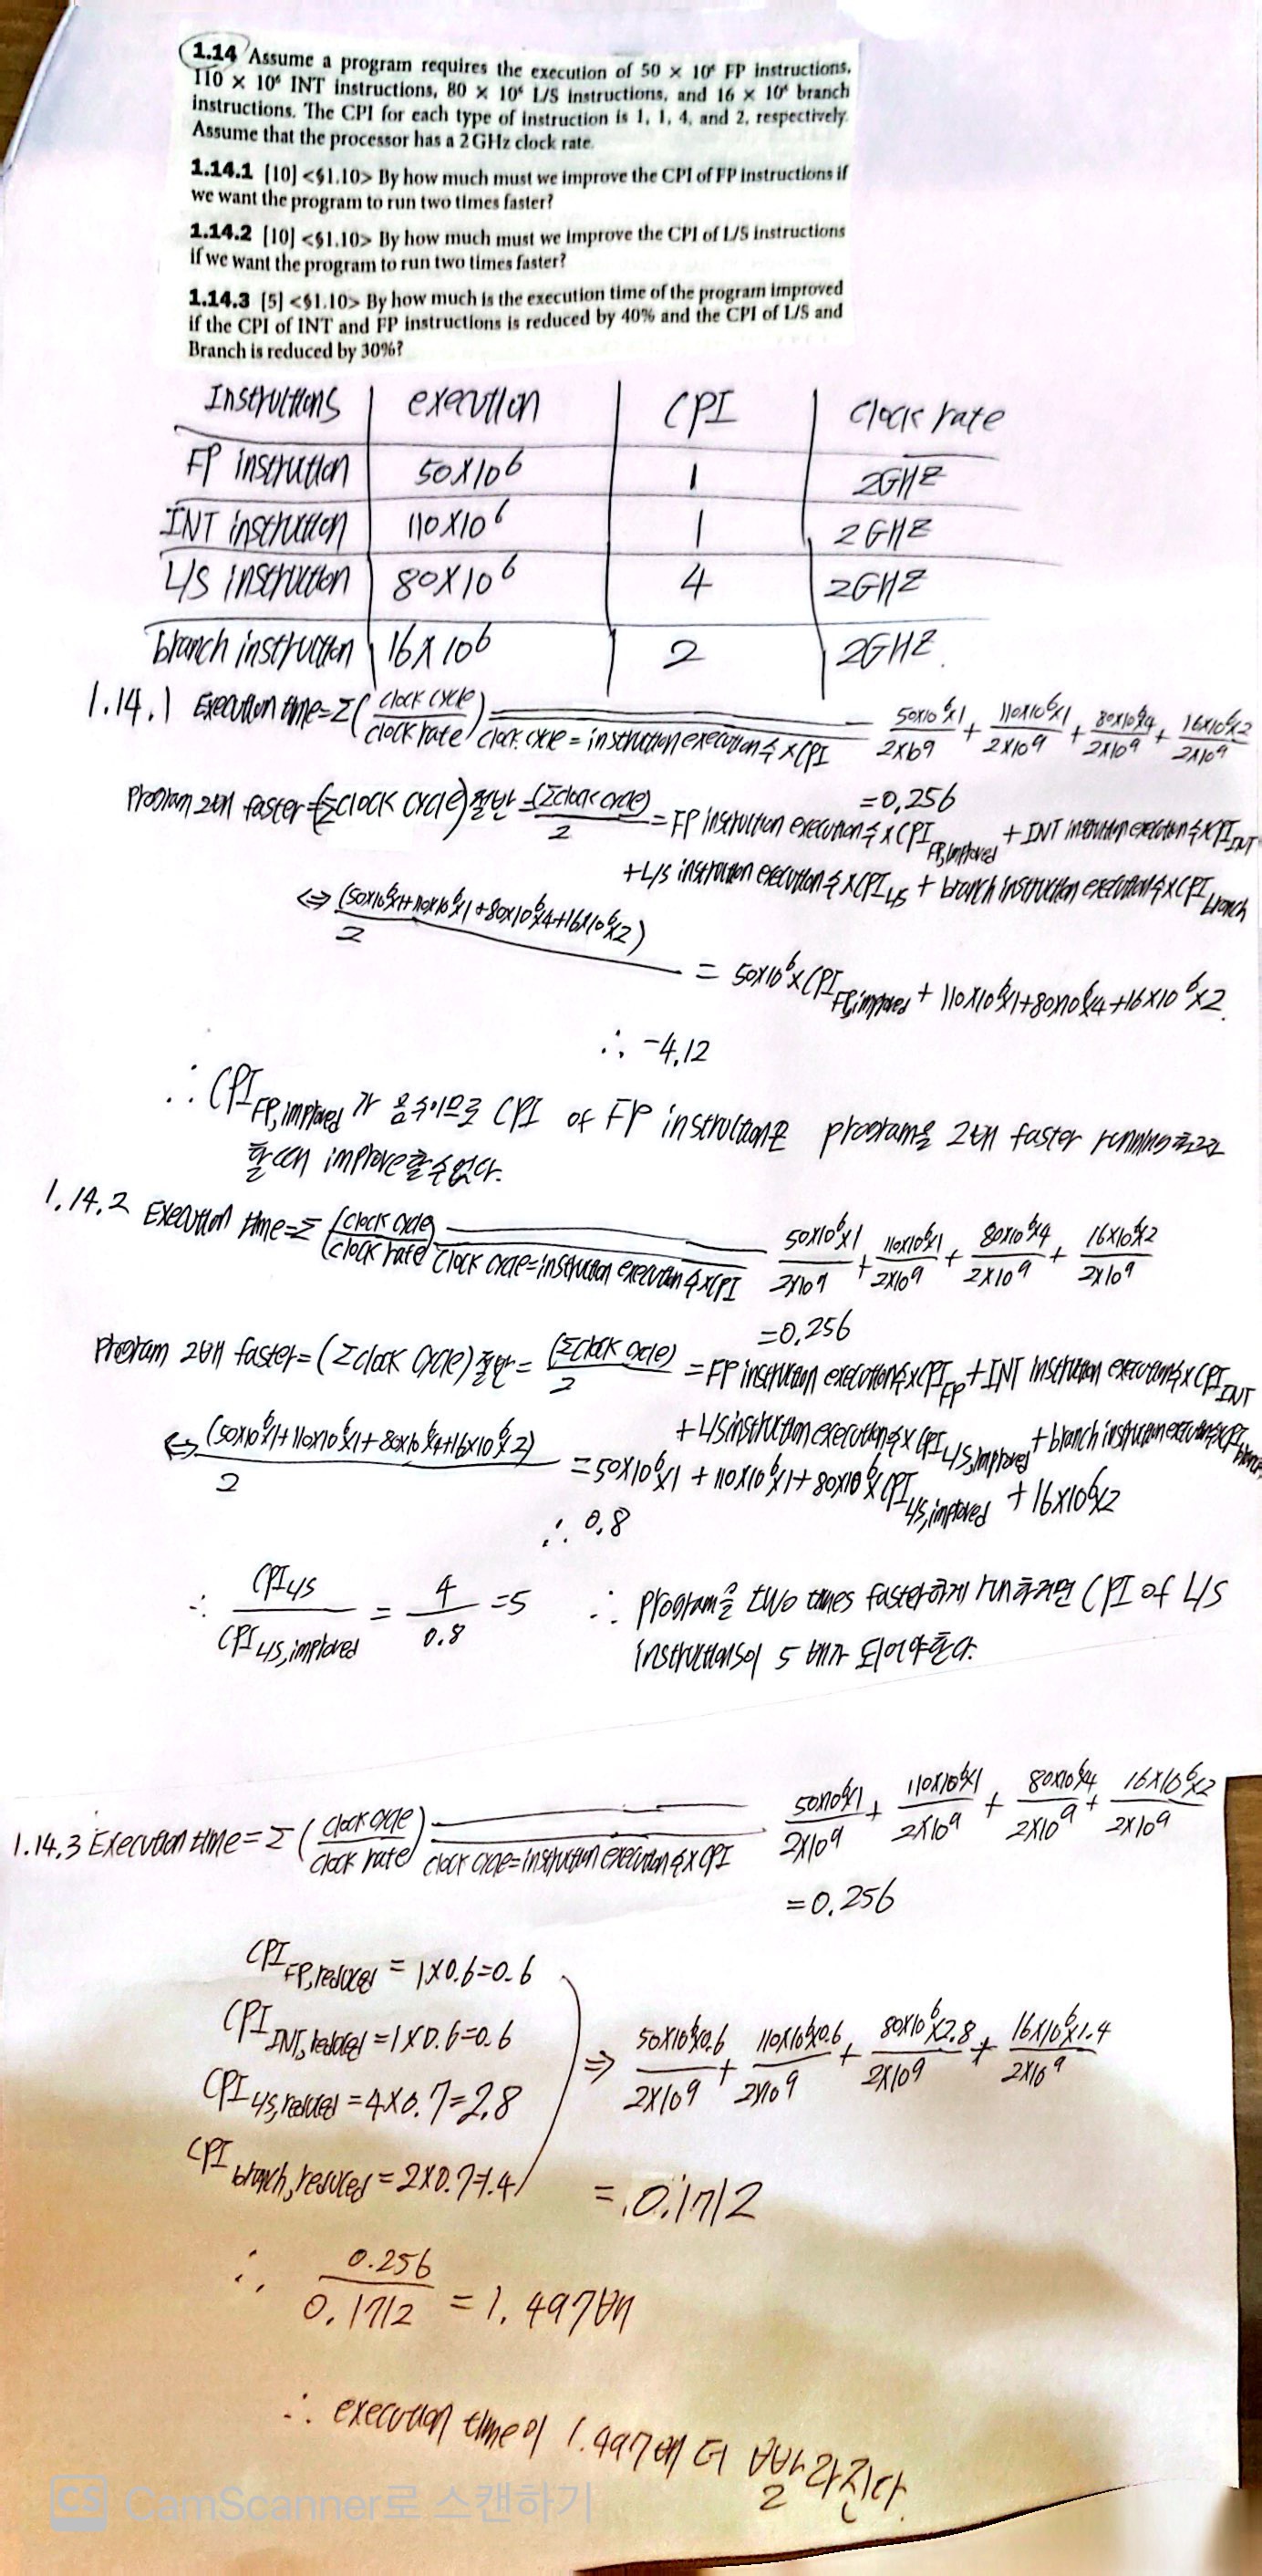 1.14 Assume a program requires the execution of 50 × 10⁶ FP instructions,
110 × 10⁶ INT instructions, 80 × 10⁶ L/S instructions, and 16 × 10⁶ branch
instructions. The CPI for each type of instruction is 1, 1, 4, and 2, respectively.
Assume that the processor has a 2 GHz clock rate.
1.14.1 [10] <§1.10> By how much must we improve the CPI of FP instructions if
we want the program to run two times faster?
1.14.2 [10] <§1.10> By how much must we improve the CPI of L/S instructions
if we want the program to run two times faster?
1.14.3 [5] <§1.10> By how much is the execution time of the program improved
if the CPI of INT and FP instructions is reduced by 40% and the CPI of L/S and
Branch is reduced by 30%?
Instructions execution CPI clock rate
FP instruction 50×10⁶ 1 2GHZ
INT instruction 110×10⁶ 1 2GHZ
L/S instruction 80×10⁶ 4 2GHZ
branch instruction 16×10⁶ 2 2GHZ
1.14.1 Execution time=Σ(clock cycle/clock rate) clock cycle=instruction execution수×CPI 50×10⁶×1/2×10⁹ + 110×10⁶×1/2×10⁹ + 80×10⁶×4/2×10⁹ + 16×10⁶×2/2×10⁹
=0.256
Program 2배 faster=(Σclock cycle)절반=(Σclock cycle)/2 =FP instruction execution수×CPI FP,improved +INT instruction execution수×CPI INT
+L/S instruction execution수×CPI L/S + branch instruction execution수×CPI branch
⇔ (50×10⁶×1+110×10⁶×1+80×10⁶×4+16×10⁶×2)/2
= 50×10⁶×CPI FP,improved + 110×10⁶×1+80×10⁶×4+16×10⁶×2
∴ -4.12
∴ CPI FP,improved 가 음수이므로 CPI of FP instruction은 program을 2배 faster running하고자
할 때 improve할 수 없다.
1.14.2 Execution time=Σ(clock cycle/clock rate) clock cycle=instruction execution수×CPI 50×10⁶×1/2×10⁹ + 110×10⁶×1/2×10⁹ + 80×10⁶×4/2×10⁹ + 16×10⁶×2/2×10⁹
=0.256
Program 2배 faster=(Σclock cycle)절반=(Σclock cycle)/2 =FP instruction execution수×CPI FP +INT instruction execution수×CPI INT
+L/S instruction execution수×CPI L/S,improved +branch instruction execution수×CPI branch
⇔ (50×10⁶×1+110×10⁶×1+80×10⁶×4+16×10⁶×2)/2 =50×10⁶×1 + 110×10⁶×1+ 80×10⁶×CPI L/S,improved + 16×10⁶×2
∴ 0.8
∴ CPI L/S / CPI L/S,improved = 4/0.8 =5 ∴ program을 two times faster하게 run하려면 CPI of L/S
instructions이 5배가 되어야한다.
1.14.3 Execution time=Σ(clock cycle/clock rate) clock cycle=instruction execution수×CPI 50×10⁶×1/2×10⁹ + 110×10⁶×1/2×10⁹ + 80×10⁶×4/2×10⁹ + 16×10⁶×2/2×10⁹
=0.256
CPI FP,reduced = 1×0.6=0.6
CPI INT,reduced =1×0.6=0.6
⇒ 50×10⁶×0.6/2×10⁹ + 110×10⁶×0.6/2×10⁹ + 80×10⁶×2.8/2×10⁹ + 16×10⁶×1.4/2×10⁹
CPI L/S,reduced =4×0.7=2.8
CPI branch,reduced =2×0.7=1.4
=0.1712
∴ 0.256/0.1712 =1.497배
∴ execution time이 1.497배 더 빨라진다.
CS CamScanner로 스캔하기